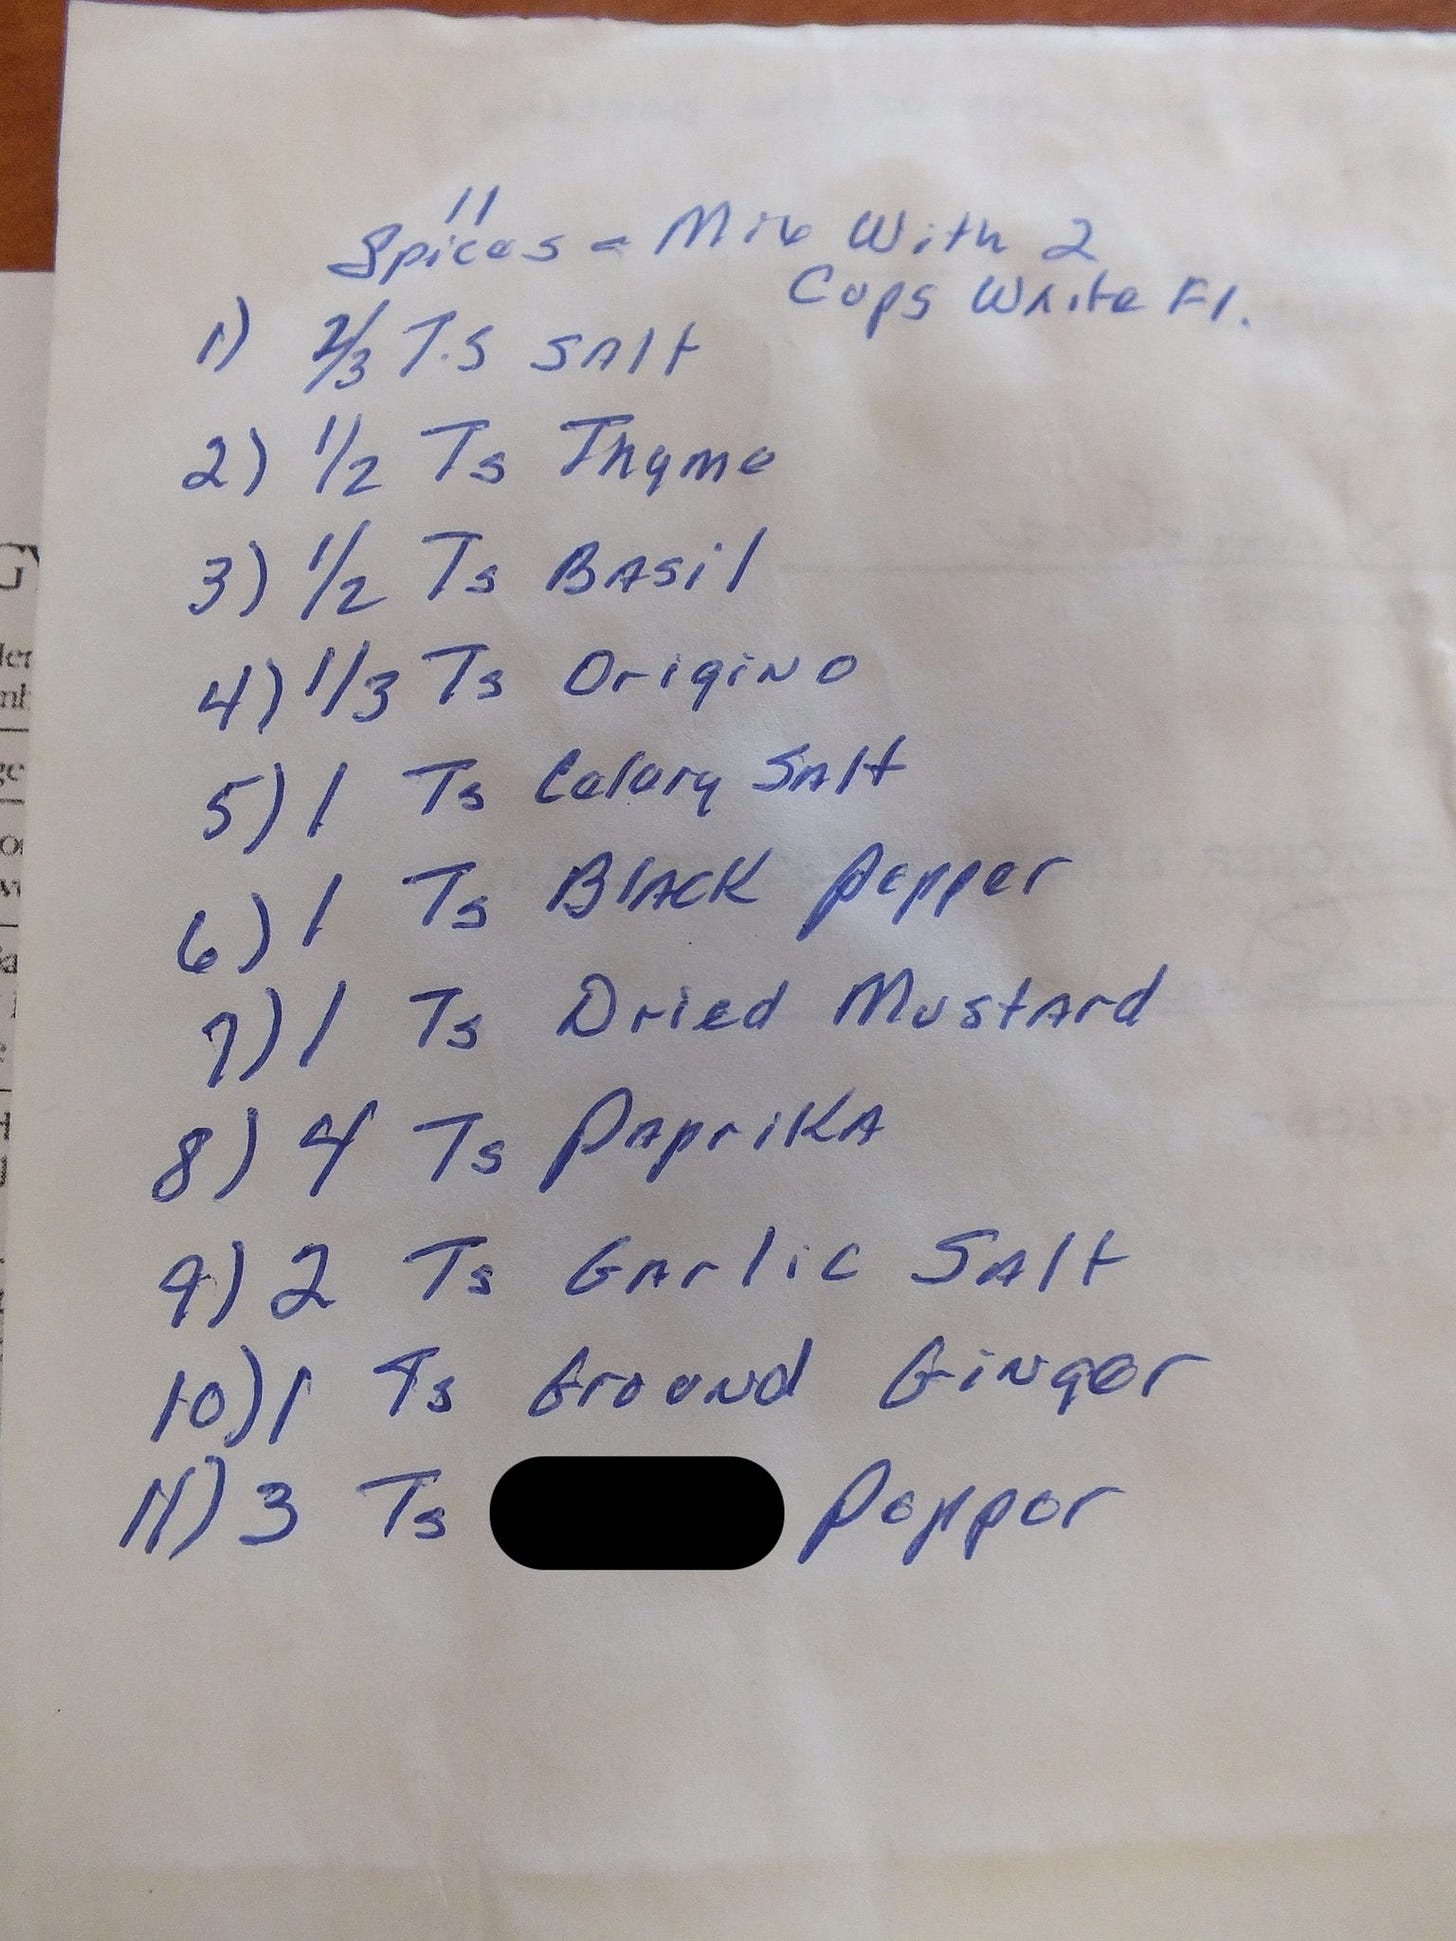 11
Spices = Mix With 2
Cups White Fl.
1) 2/3 T.S Salt
2) 1/2 Ts Thyme
3) 1/2 Ts Basil
4) 1/3 Ts Origino
5) 1 Ts Celery Salt
6) 1 Ts Black Pepper
7) 1 Ts Dried Mustard
8) 4 Ts Paprika
9) 2 Ts Garlic Salt
10) 1 Ts Ground Ginger
11) 3 Ts Pepper